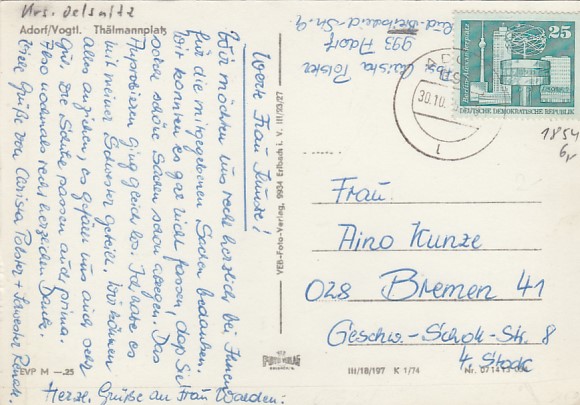 Krs. Oelsnitz
Adorf/Vogtl. Thälmannplatz
Werte Frau Kunze!
Wir möchten uns recht herzlich bei Ihnen
für die mitgegebenen Sachen bedanken.
Wir konnten es gar nicht fassen, daß Sie
solch schöne Sachen schon ablegen. Das
Anprobieren ging gleich los. Ich habe es
mit meiner Schwester geteilt. Wir können
alles anziehen, es gefällt uns auch sehr
gut. Die Schuhe passen auch prima.
Also nochmals recht herzlichen Dank.
Viele Grüße von Carissa Polster + Schwester
Herzl. Grüße an Frau
EVP M —.25
VEB-Foto-Verlag, 9934 Erlbach i. V.
III/18/197 K 1/74
Nr.
Abs. Carissa Polster
993 Adorf
25
Berlin-Alexanderplatz
DEUTSCHE DEMOKRATISCHE REPUBLIK
30.10.
1854
6,-
Frau
Aino Kunze
028 Bremen 41
Geschw.-Scholl-Str. 8
4. Stock